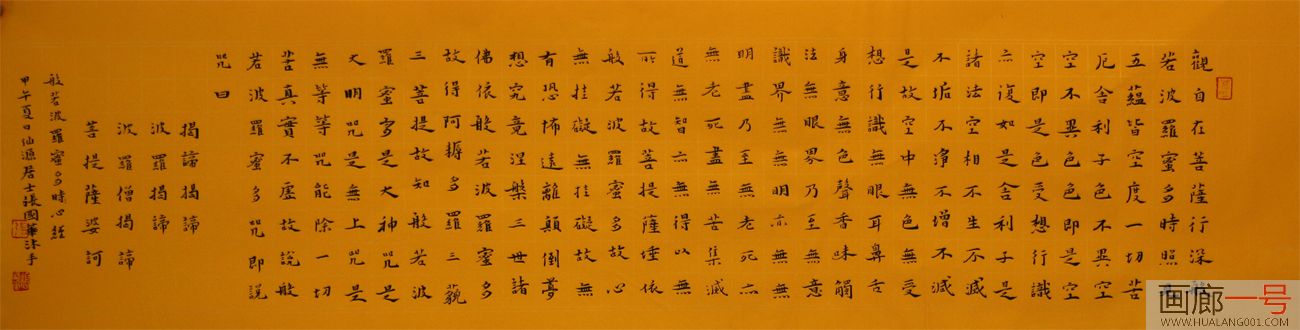 觀自在菩薩行深般
若波羅蜜多時照見
五蘊皆空度一切苦
厄舍利子色不異空
空不異色色即是空
空即是色受想行識
亦復如是舍利子是
諸法空相不生不滅
不垢不淨不增不減
是故空中無色無受
想行識無眼耳鼻舌
身意無色聲香味觸
法無眼界乃至無意
識界無無明亦無無
明盡乃至無老死亦
無老死盡無苦集滅
道無智亦無得以無
所得故菩提薩埵依
般若波羅蜜多故心
無挂礙無挂礙故無
有恐怖遠離顛倒夢
想究竟涅槃三世諸
佛依般若波羅蜜多
故得阿耨多羅三藐
三菩提故知般若波
羅蜜多是大神咒是
大明咒是無上咒是
無等等咒能除一切
苦真實不虛故說般
若波羅蜜多咒即說
咒曰
揭諦揭諦
波羅揭諦
波羅僧揭諦
菩提薩婆訶
般若波羅蜜多時心經
甲午夏日仙源居士張國華沐手
画廊一号
WWW.HUALANG001.COM